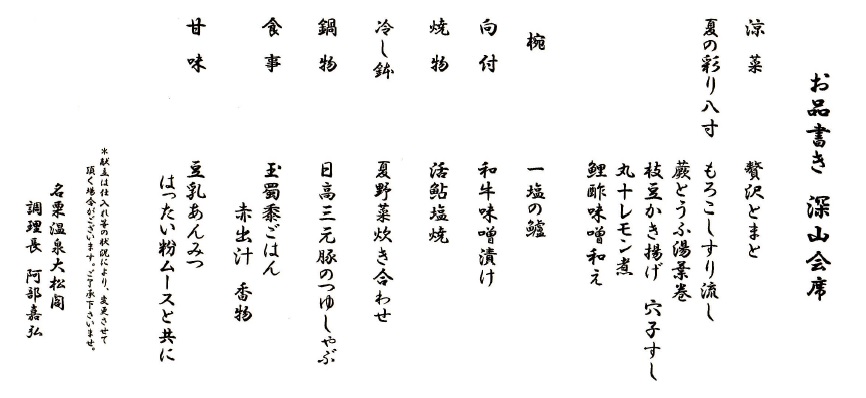 お品書き　深山会席
涼菜　贅沢とまと
夏の彩り八寸　もろこしすり流し
蕨とうふ湯葉巻
枝豆かき揚げ　穴子すし
丸十レモン煮
鯉酢味噌和え
椀　一塩の鱸
向付　和牛味噌漬け
焼物　活鮎塩焼
冷し鉢　夏野菜炊き合わせ
鍋物　日高三元豚のつゆしゃぶ
食事　玉蜀黍ごはん
赤出汁　香物
甘味　豆乳あんみつ
はったい粉ムースと共に
＊献立は仕入れ等の状況により、変更させて
頂く場合がございます。ご了承下さいませ。
名栗温泉大松閣
調理長　阿部嘉弘